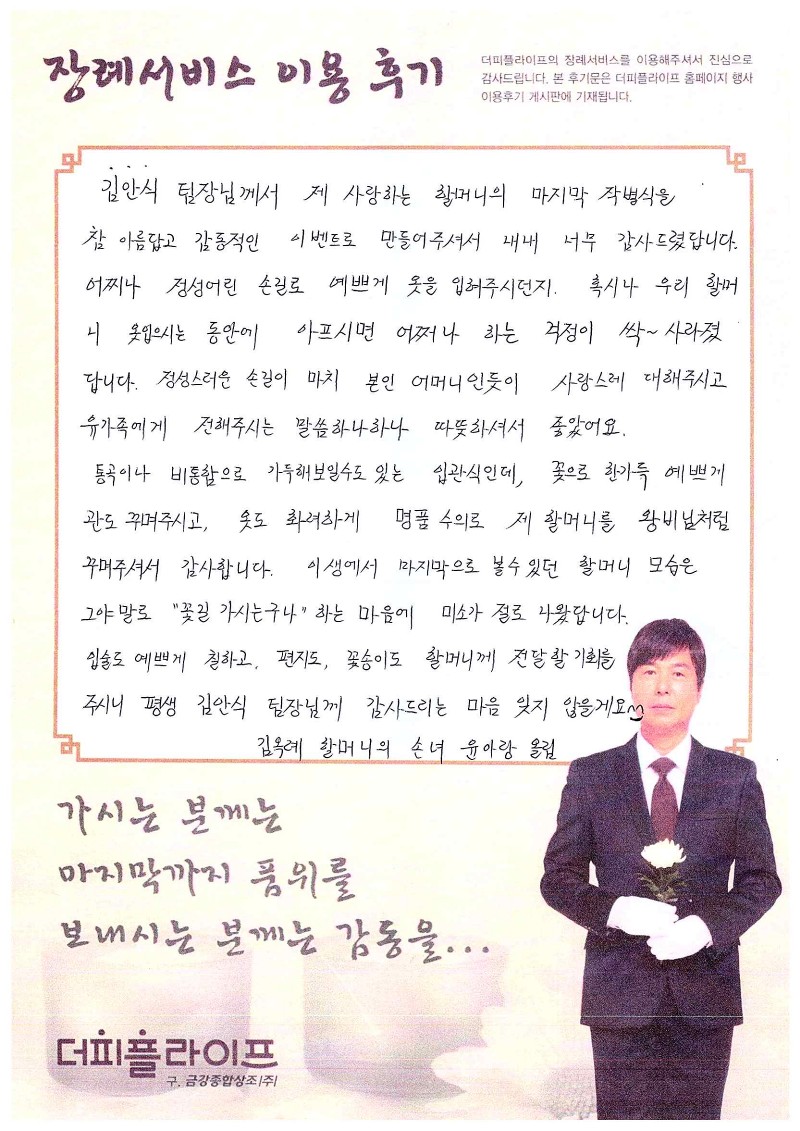 장례서비스 이용 후기
더피플라이프의 장례서비스를 이용해주셔서 진심으로
감사드립니다. 본 후기문은 더피플라이프 홈페이지 행사
이용후기 게시판에 기재됩니다.
김안식 팀장님께서 제 사랑하는 할머니의 마지막 작별식을
참 아름답고 감동적인 이벤트로 만들어주셔서 내내 너무 감사드렸답니다.
어찌나 정성어린 손길로 예쁘게 옷을 입혀주시던지. 혹시나 우리 할머
니 옷입으시는 동안에 아프시면 어쩌나 하는 걱정이 싹~ 사라졌
답니다. 정성스러운 손길이 마치 본인 어머니인듯이 사랑스레 대해주시고
유가족에게 전해주시는 말씀하나하나 따뜻하셔서 좋았어요.
통곡이나 비통함으로 가득해보일수도 있는 입관식인데, 꽃으로 한가득 예쁘게
관도 꾸며주시고, 옷도 화려하게 명품 수의로 제 할머니를 왕비님처럼
꾸며주셔서 감사합니다. 이생에서 마지막으로 볼수있던 할머니 모습은
그야말로 "꽃길 가시는구나" 하는 마음에 미소가 절로 나왔답니다.
입술도 예쁘게 칠하고, 편지도, 꽃송이도 할머니께 전달할 기회를
주시니 평생 김안식 팀장님께 감사드리는 마음 잊지 않을게요
김옥례 할머니의 손녀 윤아랑 올림
가시는 분께는
마지막까지 품위를
보내시는 분께는 감동을...
더피플라이프
구. 금강종합상조(주)